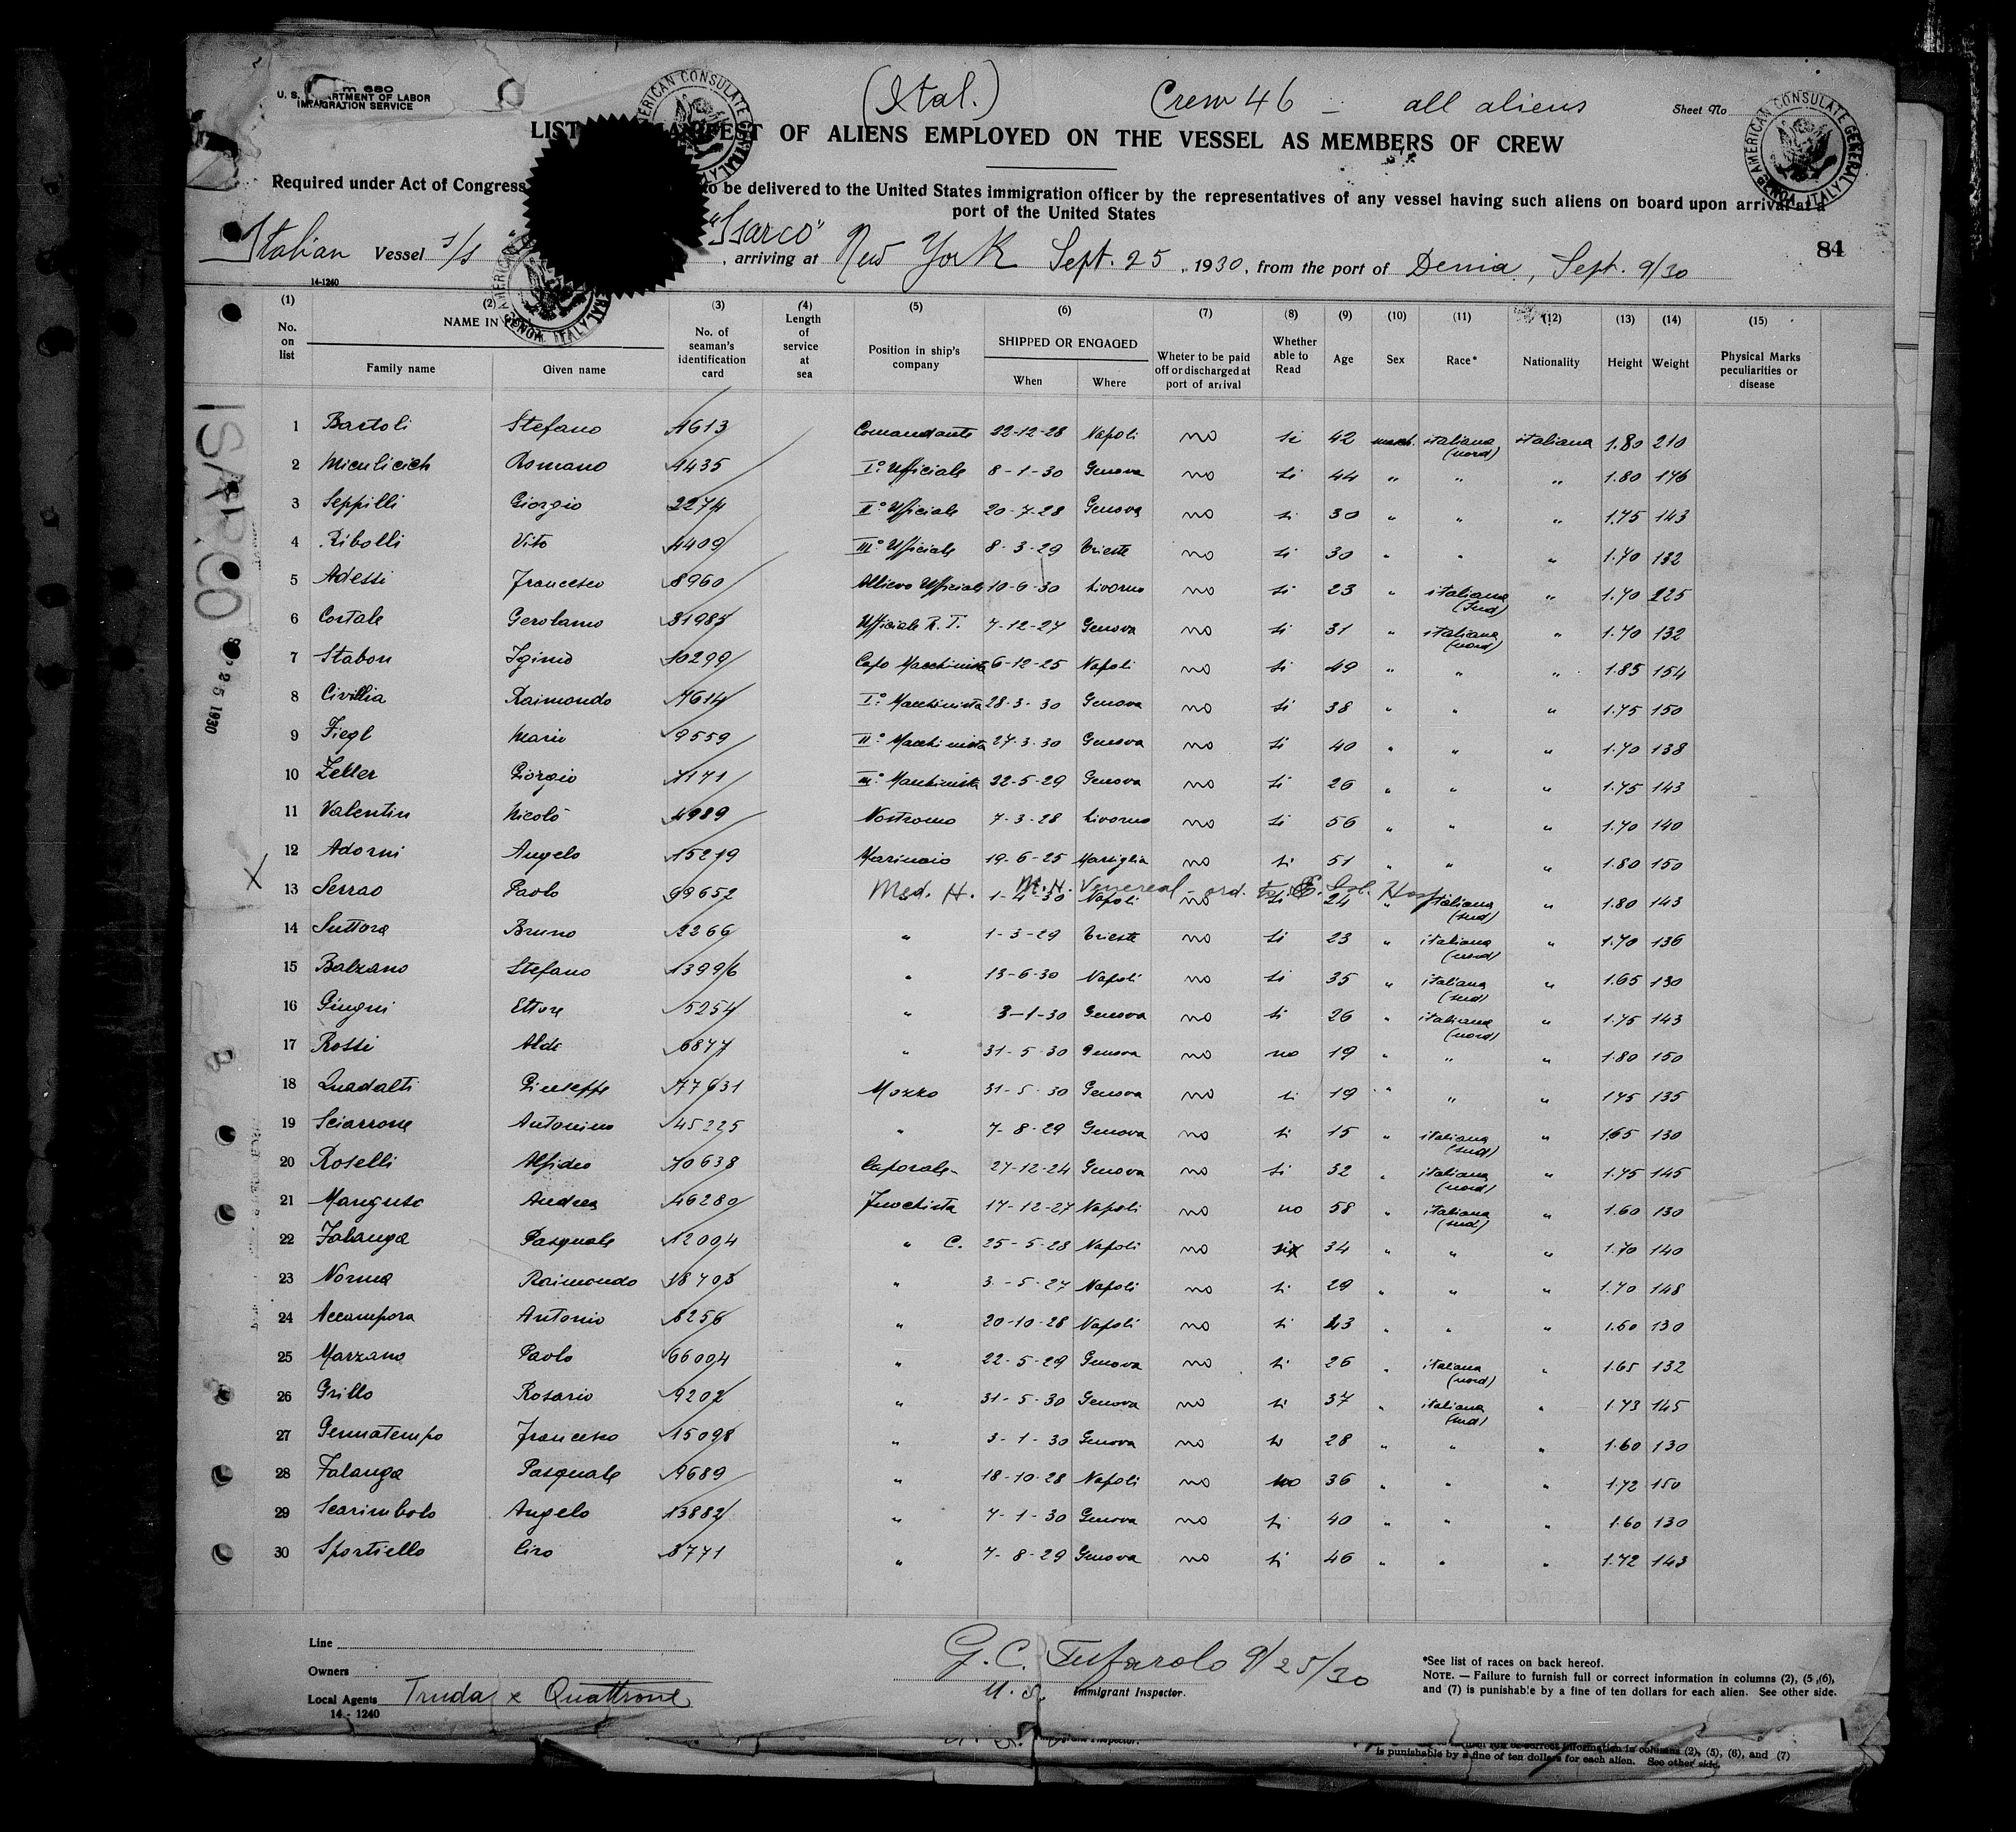 Form 680
U. S. DEPARTMENT OF LABOR
IMMIGRATION SERVICE
(Ital.) Crew 46 - all aliens
Sheet No
AMERICAN CONSULATE GENERAL GENOA, ITALY
LIST MANIFEST OF ALIENS EMPLOYED ON THE VESSEL AS MEMBERS OF CREW
Required under Act of Congress to be delivered to the United States immigration officer by the representatives of any vessel having such aliens on board upon arrival at a
port of the United States
Italian Vessel S/S "Isarco", arriving at New York Sept. 25, 1930, from the port of Denia, Sept. 9/30
84
14-1240
(1) (2) (3) (4) (5) (6) (7) (8) (9) (10) (11) (12) (13) (14) (15)
No. on list NAME IN Family name Given name No. of seaman's identification card Length of service at sea Position in ship's company SHIPPED OR ENGAGED When Where Wheter to be paid off or discharged at port of arrival Whether able to Read Age Sex Race* Nationality Height Weight Physical Marks peculiarities or disease
ISARCO
25 1930
1 Bartoli Stefano 4613 Comandante 22-12-28 Napoli no si 42 masch. italiana (nord) italiana 1.80 210
2 Miculicich Romano 4435 I° Ufficiale 8-1-30 Genova no si 44 " " " 1.80 176
3 Seppilli Giorgio 2274 II° Ufficiale 20-7-28 Genova no si 30 " " " 1.75 143
4 Ribolli Vito 4409 III° Ufficiale 8-3-29 Trieste no si 30 " " " 1.70 132
5 Adessi Francesco 8960 Allievo Ufficiale 10-6-30 Livorno no si 23 " italiana (Sud) " 1.70 225
6 Costale Gerolamo 31985 Ufficiale R.T. 7-12-27 Genova no si 31 " italiana (nord) " 1.70 132
7 Stabon Iginio 10299 Capo Macchinista 6-12-25 Napoli no si 49 " " " 1.85 154
8 Civillia Raimondo 4614 I° Macchinista 28-3-30 Genova no si 38 " " " 1.75 150
9 Fiegl Mario 9559 II° Macchinista 27-3-30 Genova no si 40 " " " 1.70 138
10 Zeller Giorgio 1171 III° Macchinista 22-5-29 Genova no si 26 " " " 1.75 143
11 Valentin Nicolò 4989 Nostromo 7-3-28 Livorno no si 56 " " " 1.70 140
12 Adorni Angelo 15219 Marinaio 19-6-25 Marsiglia no si 51 " " " 1.80 150
X 13 Serrao Paolo 99652 Med. H. M.H. Venereal - ord. to E. Isl. Hosp. 1-4-30 Napoli no si 24 " italiana (sud) " 1.80 143
14 Suttora Bruno 2266 " 1-3-29 Trieste no si 23 " italiana (nord) " 1.70 136
15 Balzano Stefano 13996 " 13-6-30 Napoli no si 35 " italiana (sud) " 1.65 130
16 Giugni Ettore 5254 " 3-1-30 Genova no si 26 " italiana (nord) " 1.75 143
17 Rossi Aldo 6877 " 31-5-30 Genova no no 19 " " " 1.80 150
18 Quadalti Giuseppe 77631 Mozzo 31-5-30 Genova no si 19 " " " 1.75 135
19 Sciarrone Antonino 45225 " 7-8-29 Genova no si 15 " italiana (sud) " 1.65 130
20 Roselli Alfideo 70638 Caporale 27-12-24 Genova no si 32 " italiana (nord) " 1.75 145
21 Manguso Andrea 46280 Fuochista 17-12-27 Napoli no no 58 " italiana (sud) " 1.60 130
22 Falanga Pasquale 12004 " C. 25-5-28 Napoli no si 34 " " " 1.70 140
23 Norma Raimondo 38703 " 3-5-27 Napoli no si 29 " " " 1.70 148
24 Accampora Antonio 8256 " 20-10-28 Napoli no si 43 " " " 1.60 130
25 Marzano Paolo 66004 " 22-5-29 Genova no si 26 " italiana (nord) " 1.65 132
26 Grillo Rosario 9202 " 31-5-30 Genova no si 37 " italiana (sud) " 1.73 145
27 Gennatempo Francesco 15098 " 3-1-30 Genova no si 28 " " " 1.60 130
28 Falanga Pasquale 9689 " 18-10-28 Napoli no no 36 " " " 1.72 150
29 Scarimbolo Angelo 13882 " 7-1-30 Genova no si 40 " " " 1.60 130
30 Sportiello Ciro 8771 " 7-8-29 Genova no si 46 " " " 1.72 143
Line
Owners
Local Agents Truda & Quattrone
14 - 1240
G. C. Tufarolo 9/25/30
U. S. Immigrant Inspector.
*See list of races on back hereof.
NOTE. — Failure to furnish full or correct information in columns (2), (5), (6),
and (7) is punishable by a fine of ten dollars for each alien. See other side.
correct information in columns (2), (5), (6), and (7)
is punishable by a fine of ten dollars for each alien. See other side.